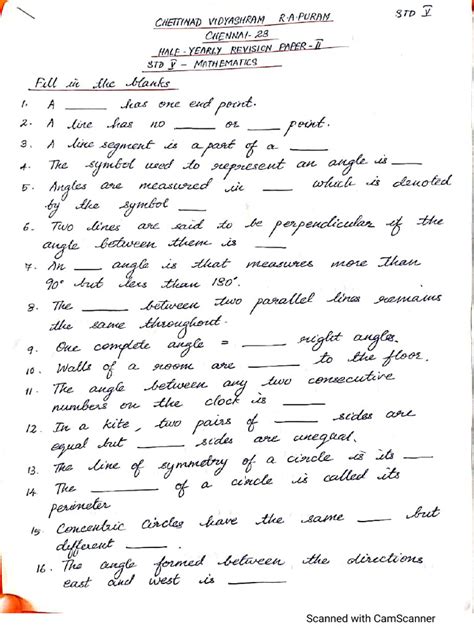 CHETTINAD VIDYASHRAM R.A.PURAM STD V
CHENNAI-28
HALF-YEARLY REVISION PAPER-II
STD V - MATHEMATICS
Fill in the blanks
1. A ____ has one end point.
2. A line has no ____ or ____ point.
3. A line segment is a part of a ____
4. The symbol used to represent an angle is ____
5. Angles are measured in ____ which is denoted
by the symbol ____
6. Two lines are said to be perpendicular if the
angle between them is ____
7. An ____ angle is that measures more than
90° but less than 180°.
8. The ____ between two parallel lines remains
the same throughout.
9. One complete angle = ____ right angles.
10. Walls of a room are ____ to the floor.
11. The angle between any two consecutive
numbers on the clock is ____
12. In a kite, two pairs of ____ sides are
equal but ____ sides are unequal.
13. The line of symmetry of a circle is its ____
14. The ____ of a circle is called its
perimeter
15. Concentric circles have the same ____ but
different ____
16. The angle formed between the directions
east and west is ____
Scanned with CamScanner